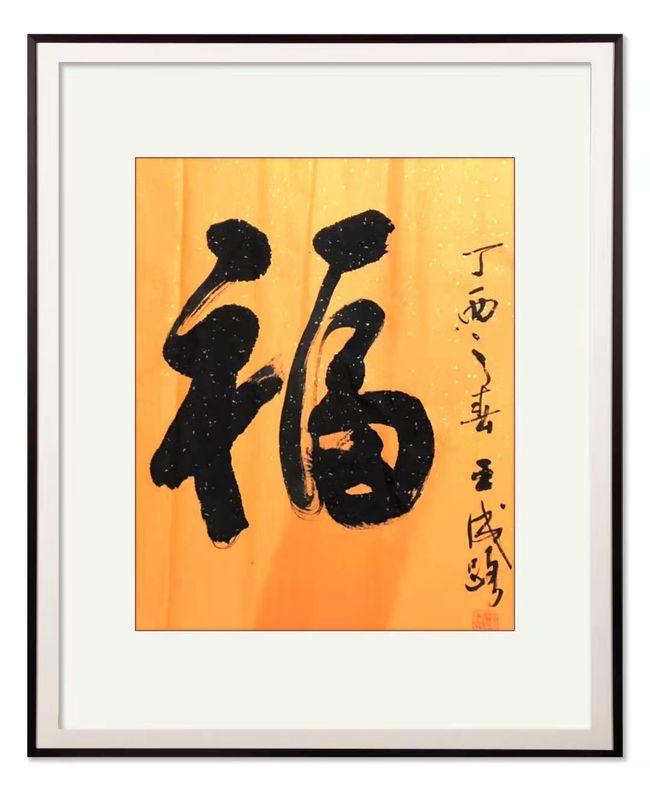 福
丁酉之春 王成